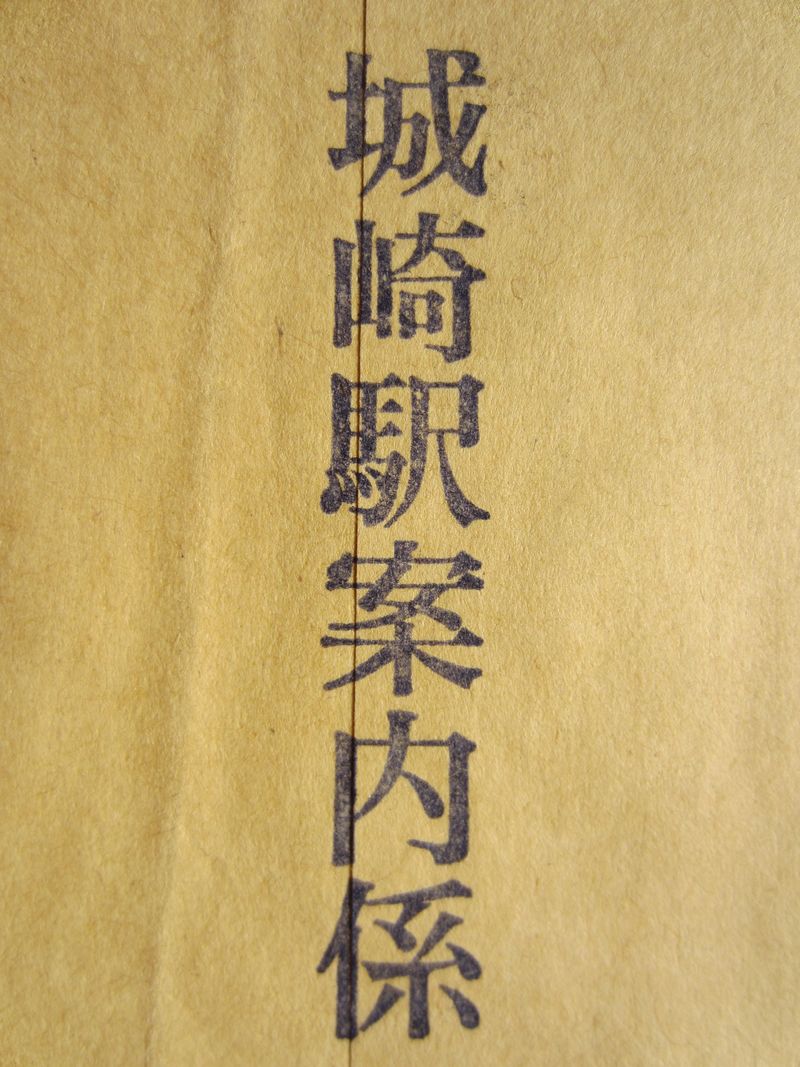 城崎駅案内係